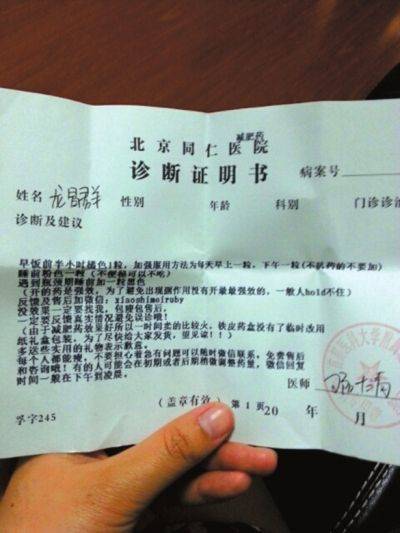 减肥药
北京同仁医院
诊断证明书
病案号
姓名 性别 年龄 科别 门诊诊
诊断及建议
早饭前半小时橘色1粒,加强服用方法为每天早上一粒,下午一粒(不趴药的不要加)
睡前粉色一粒(不便秘可以不吃)
遇到瓶颈期睡前加一粒黑色
(开的药是强效,为了避免出现副作用没有开最最强效的,一般人hold不住)
反馈及售后加微信:xiaoshimeiruby
没效果一定要找我,包瘦包售后,
一定要反馈真实情况避免误诊哦!
(由于减肥药效果好所以一时间卖的比较火,铁皮药盒没有了临时改用
纸礼盒包装,为了尽快给大家发货,望见谅!!)
多送些大用的礼物表示歉意。
每个人都能瘦,不要担心着急有问题可以随时微信联系,免费售后
和咨询哦!有的人可能会在初期或者后期稍微调整药量,微信回复
时间一般在下午到凌晨。
医师
(盖章有效) 第1页20 年 月
孚字245